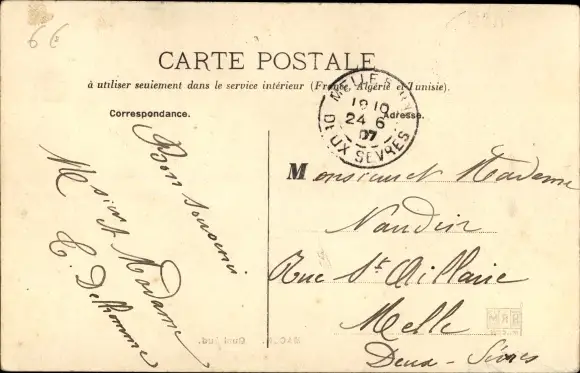 66
CARTE POSTALE
à utiliser seulement dans le service intérieur (France, Algérie et Tunisie).
Correspondance.
Adresse.
MELLE
19 10
24 6
07
DEUX SEVRES
Bon souvenir
Msieur et Madame
C. Delhomme
Monsieur et Madame
Naudin
Rue St Hillaire
Melle
Deux-Sèvres